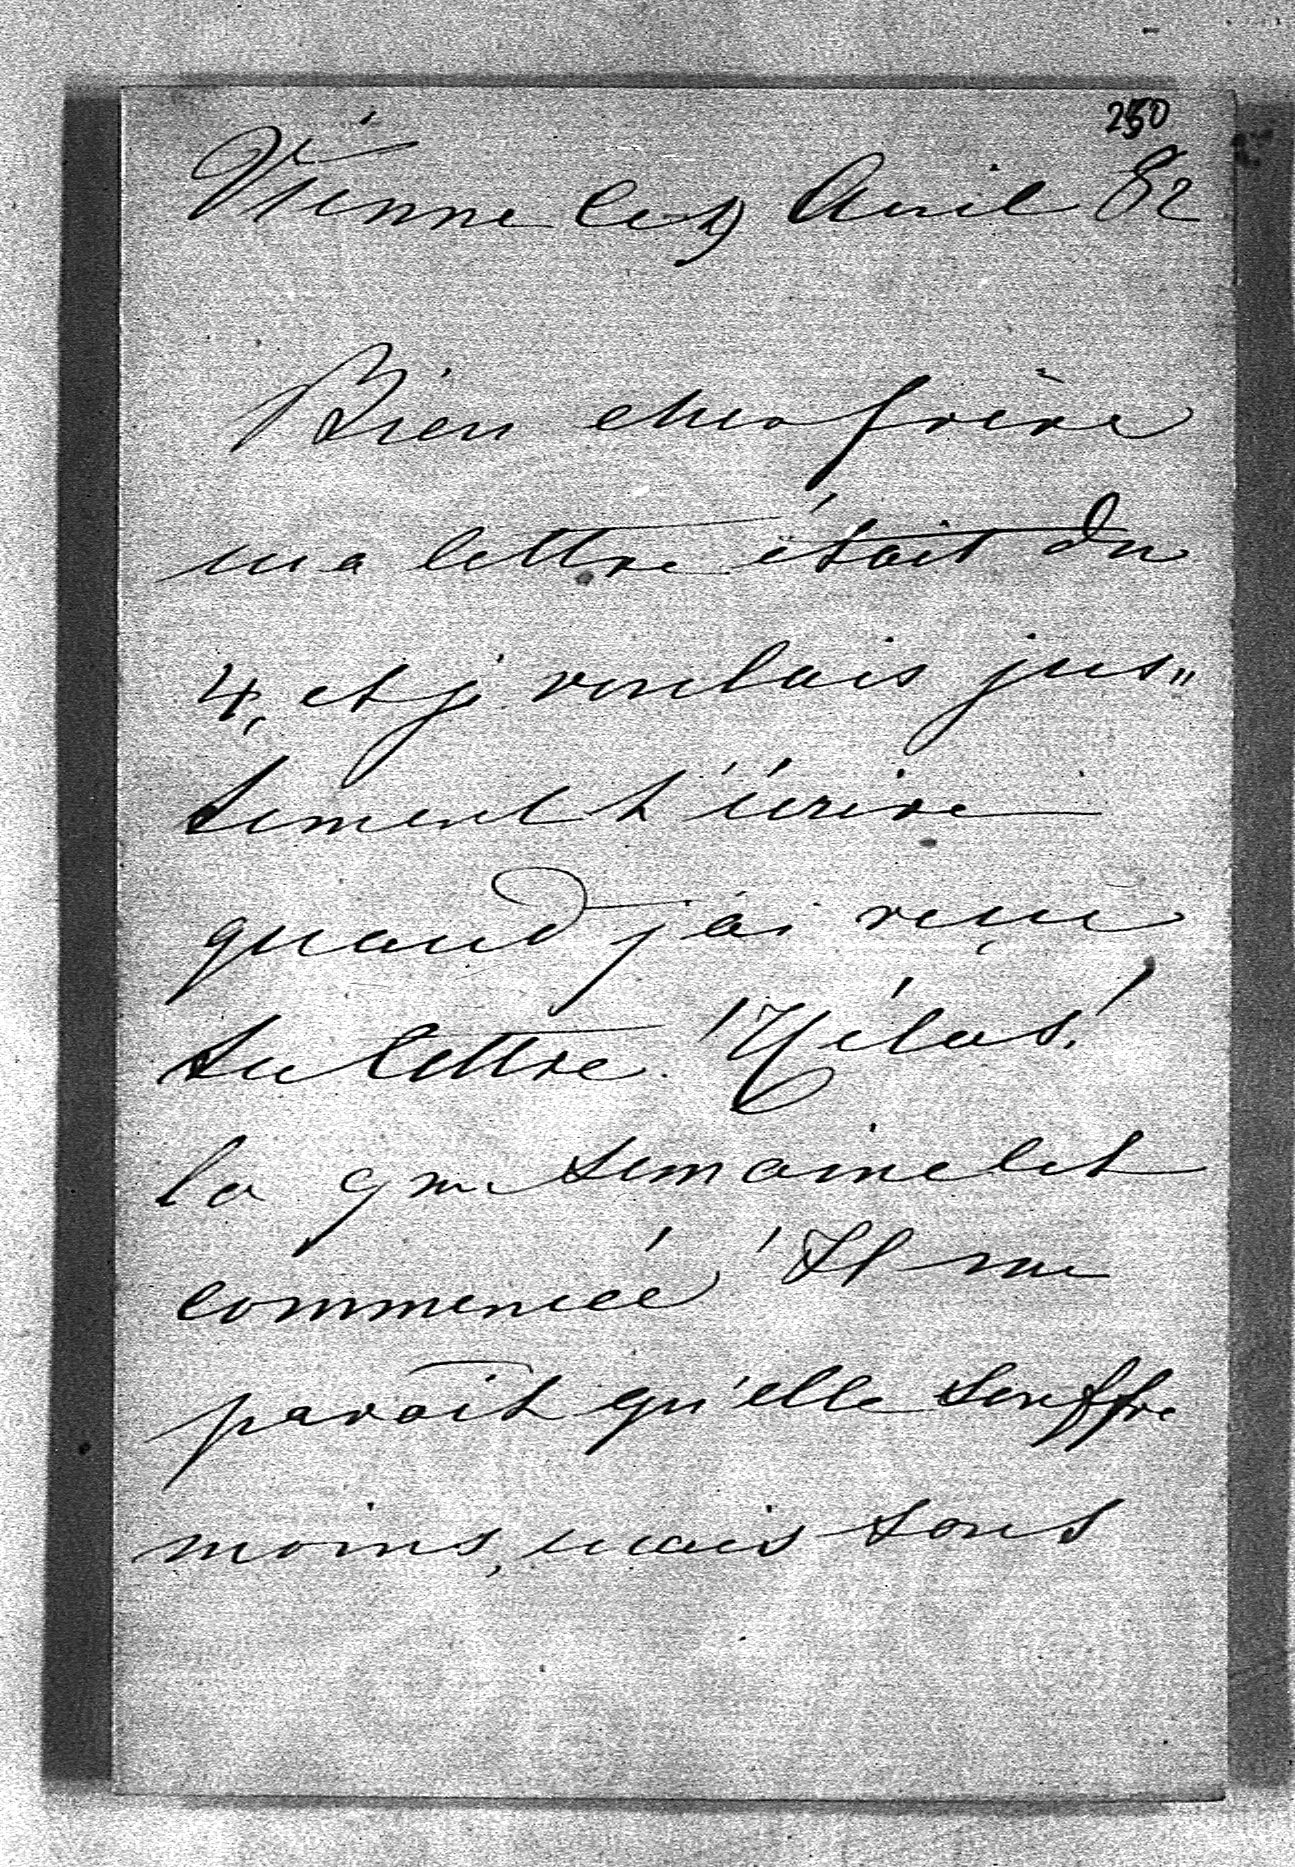 250
Vienne le 9 Avril 82
Bien cher frère
ma lettre était du
4, et je voulais jus„
tement t'écrire
quand j'ai reçu
ta lettre. Hélas!
la 9me semaine est
commencée! Il me
paraît qu'elle souffre
moins, mais tout